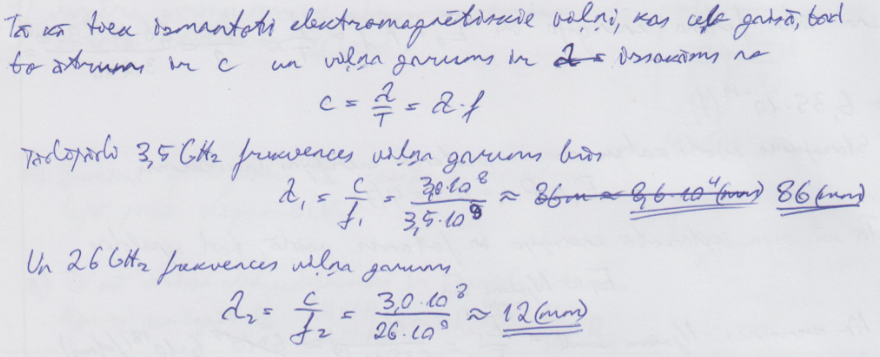 Tā kā tiek izmantoti elektromagnētiskie viļņi, kas ceļo gaisā, tad
to ātrums ir c un viļņa garums ir izsakāms no
c = λ/T = λ·f
Tādēļ 3,5 GHz frekvences viļņa garums būs
λ₁ = c/f₁ = 3,0·10⁸/3,5·10⁹ ≈ 86m = 8,6·10⁴(mm) 86(mm)
Un 26 GHz frekvences viļņa garums
λ₂ = c/f₂ = 3,0·10⁸/26·10⁹ ≈ 12(mm)